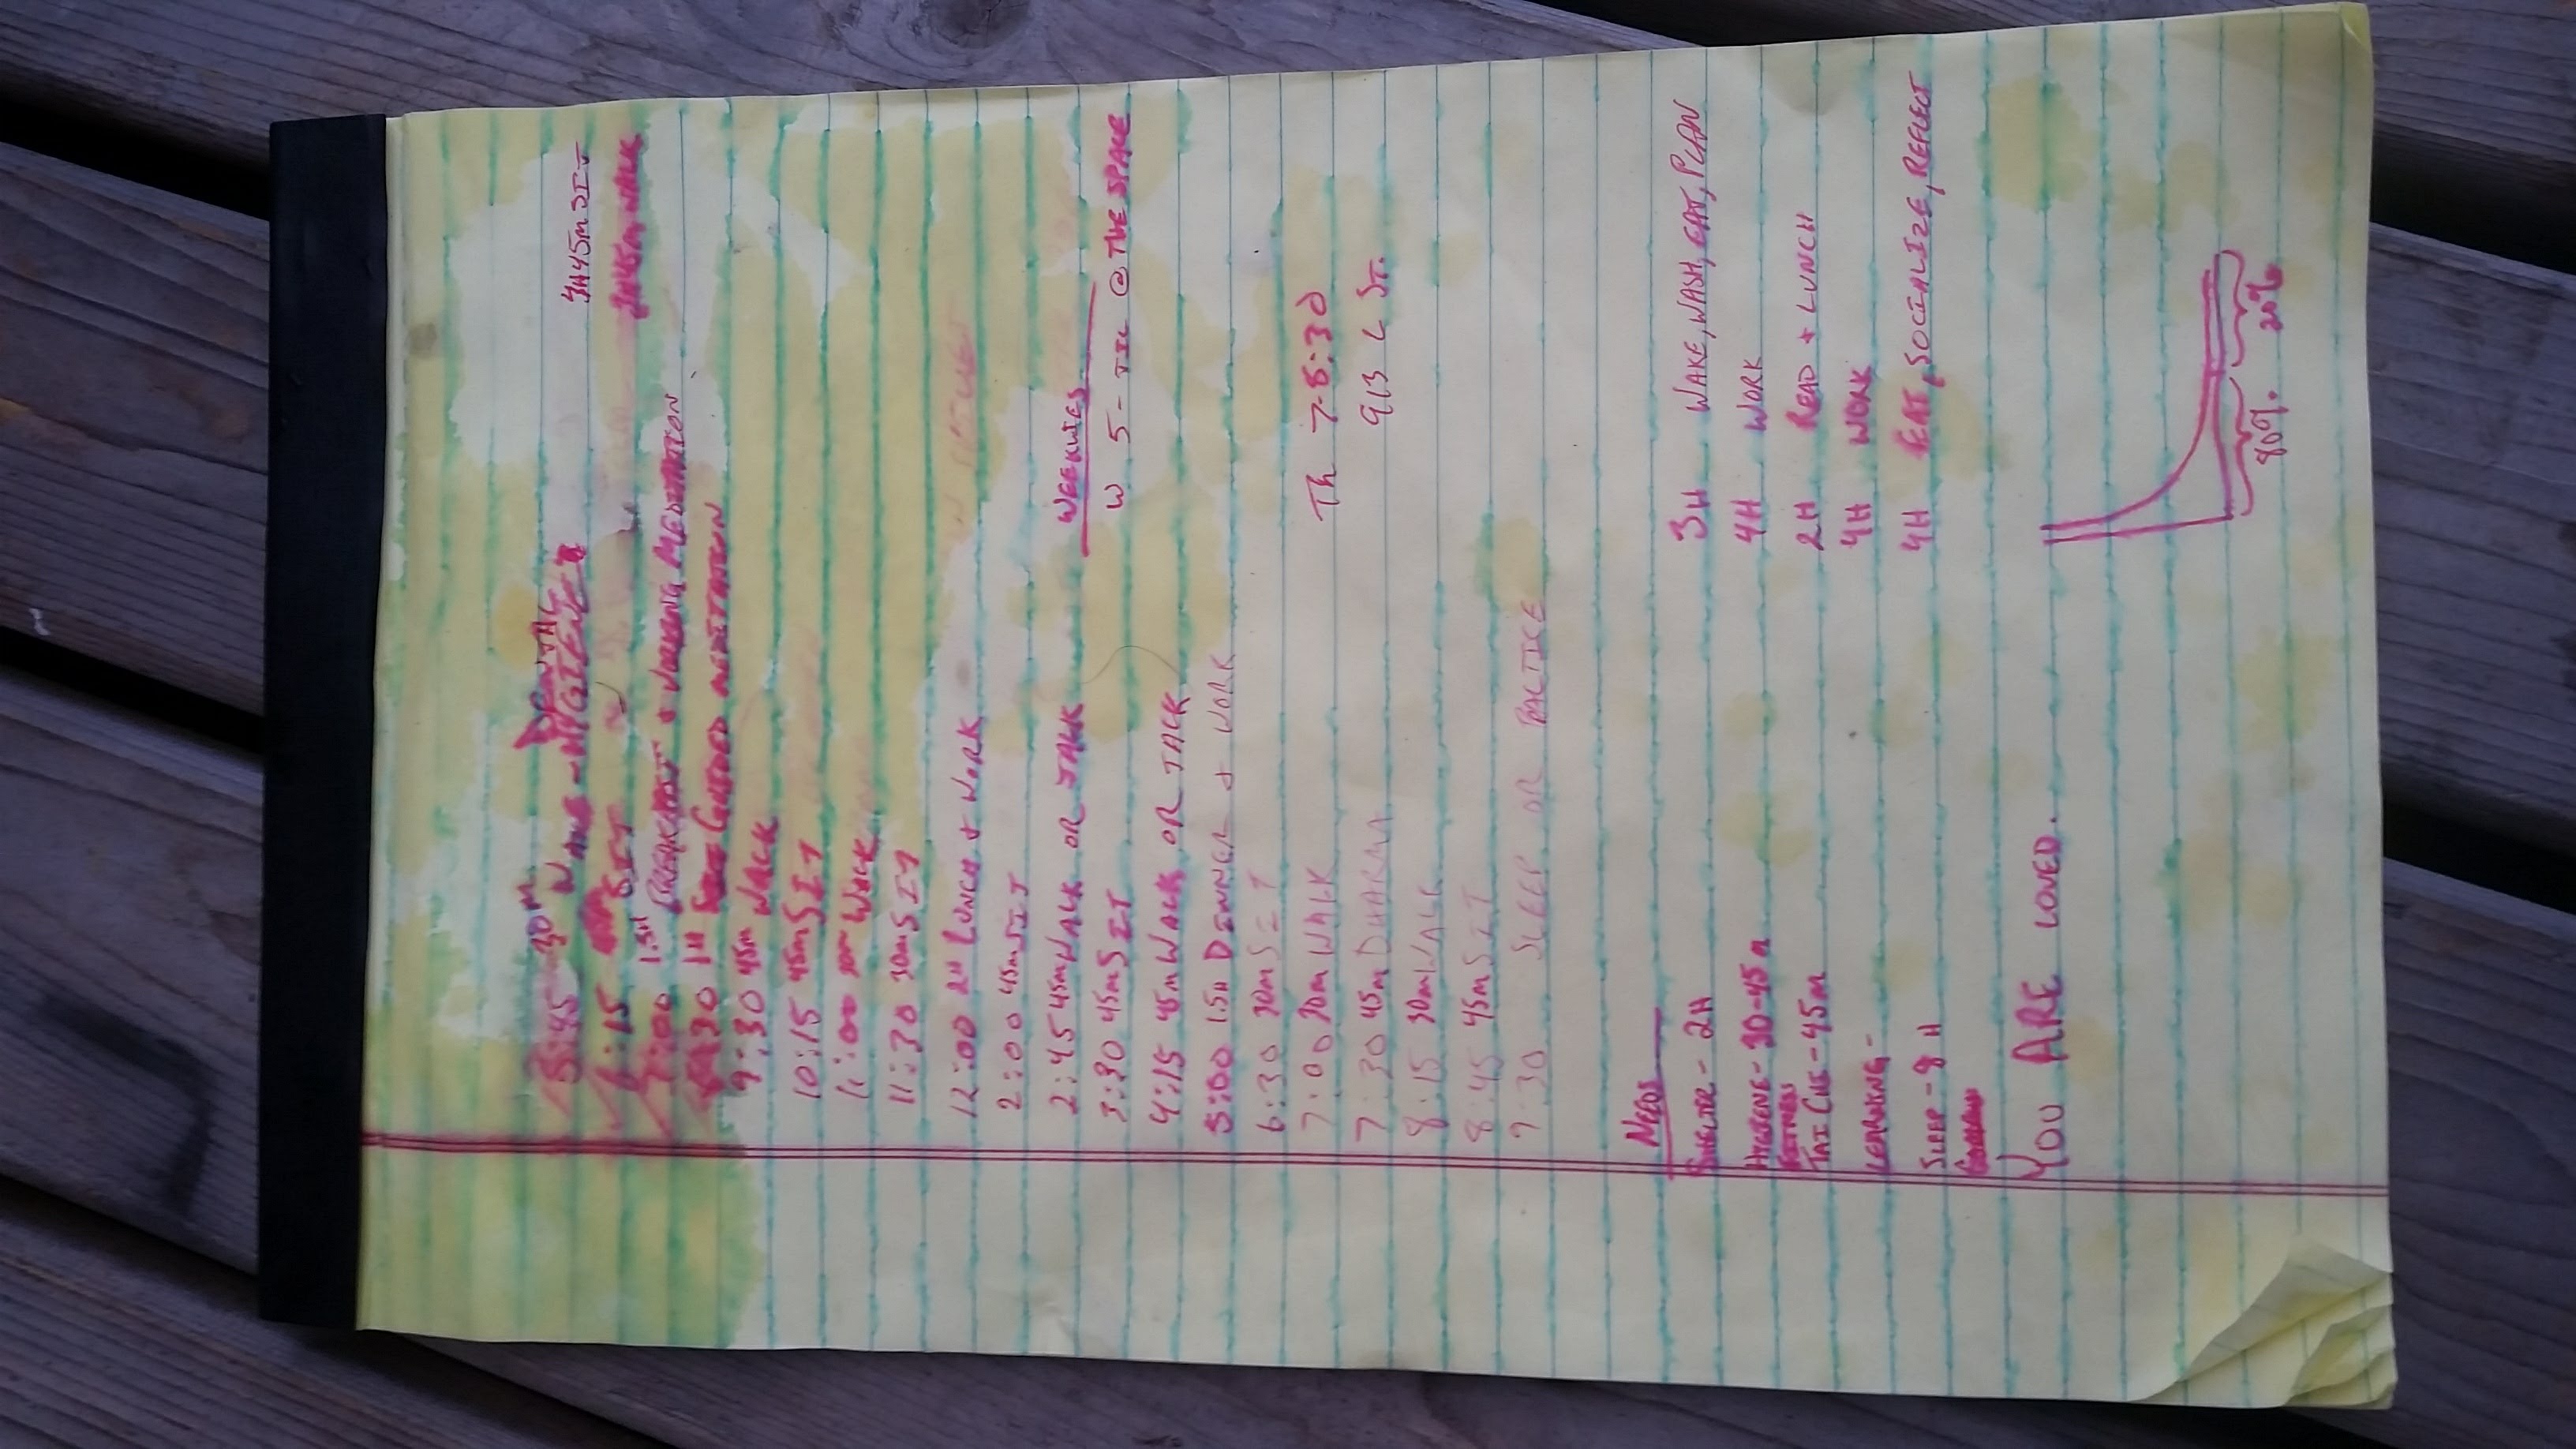 5:45 30M WAKE - DENTAL HYGIENE
6:15 SIT
7:00 1.5H BREAKFAST + WORKING MEDITATION
8:30 1H GUIDED MEDITATION
9:30 45M WALK
10:15 45M SIT
11:00 30M WALK
11:30 30M SIT
12:00 2H LUNCH + WORK
2:00 45M SIT
2:45 45M WALK OR TALK
3:30 45M SIT
4:15 45M WALK OR TALK
5:00 1.5H DINNER + WORK
6:30 30M SIT
7:00 30M WALK
7:30 45M DHARMA
8:15 30M WALK
8:45 45M SIT
9:30 SLEEP OR PRACTICE
45M SIT
3H45M WALK
WEEKLIES
W 5 - TIL @ THE SPACE
Th 7-8:30
913 L ST.
NEEDS
SHELTER - 2H
HYGIENE - 30-45M
FITNESS
TAI CHI - 45M
LEARNING -
SLEEP - 8 H
3H WAKE, WASH, EAT, PLAN
4H WORK
2H READ + LUNCH
4H WORK
4H EAT, SOCIALIZE, REFLECT
YOU ARE LOVED.
80% 20%